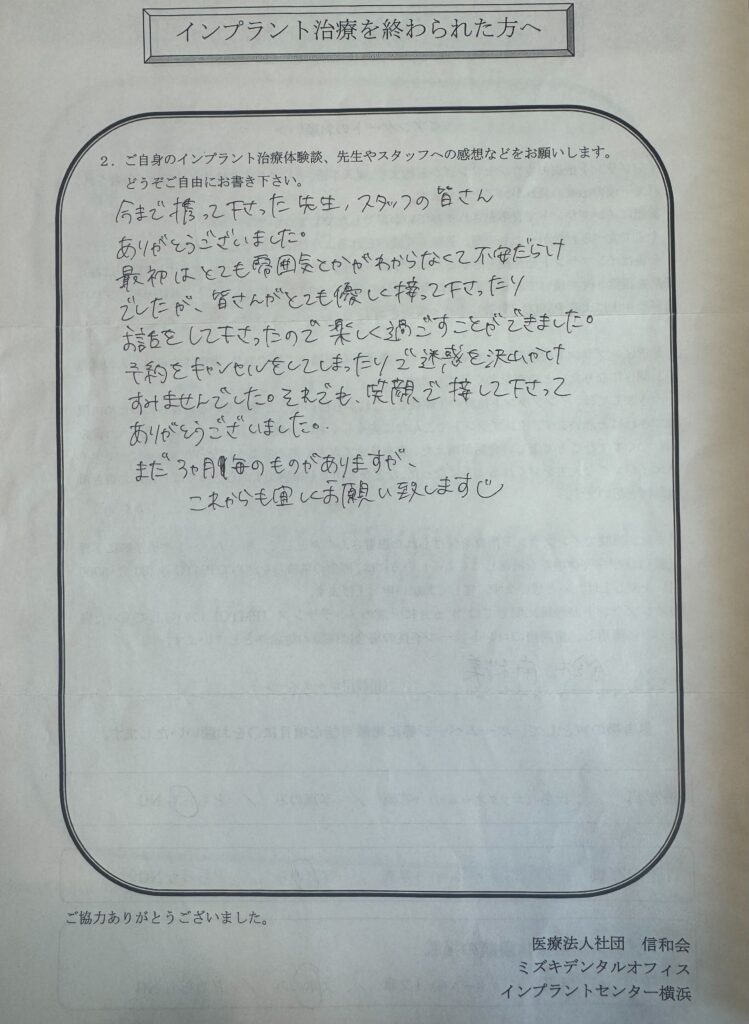 インプラント治療を終わられた方へ
2．ご自身のインプラント治療体験談、先生やスタッフへの感想などをお願いします。
どうぞご自由にお書き下さい。
今まで携って下さった先生，スタッフの皆さん
ありがとうございました。
最初はとても雰囲気とかがわからなくて不安だらけ
でしたが、皆さんがとても優しく接って下さったり
お話をして下さったので楽しく過ごすことができました。
予約をキャンセルをしてしまったりで迷惑を沢山かけ
すみませんでした。それでも、笑顔で接して下さって
ありがとうございました。
まだ3ヶ月毎のものがありますが、
これからも宜しくお願い致します
ご協力ありがとうございました。
医療法人社団　信和会
ミズキデンタルオフィス
インプラントセンター横浜